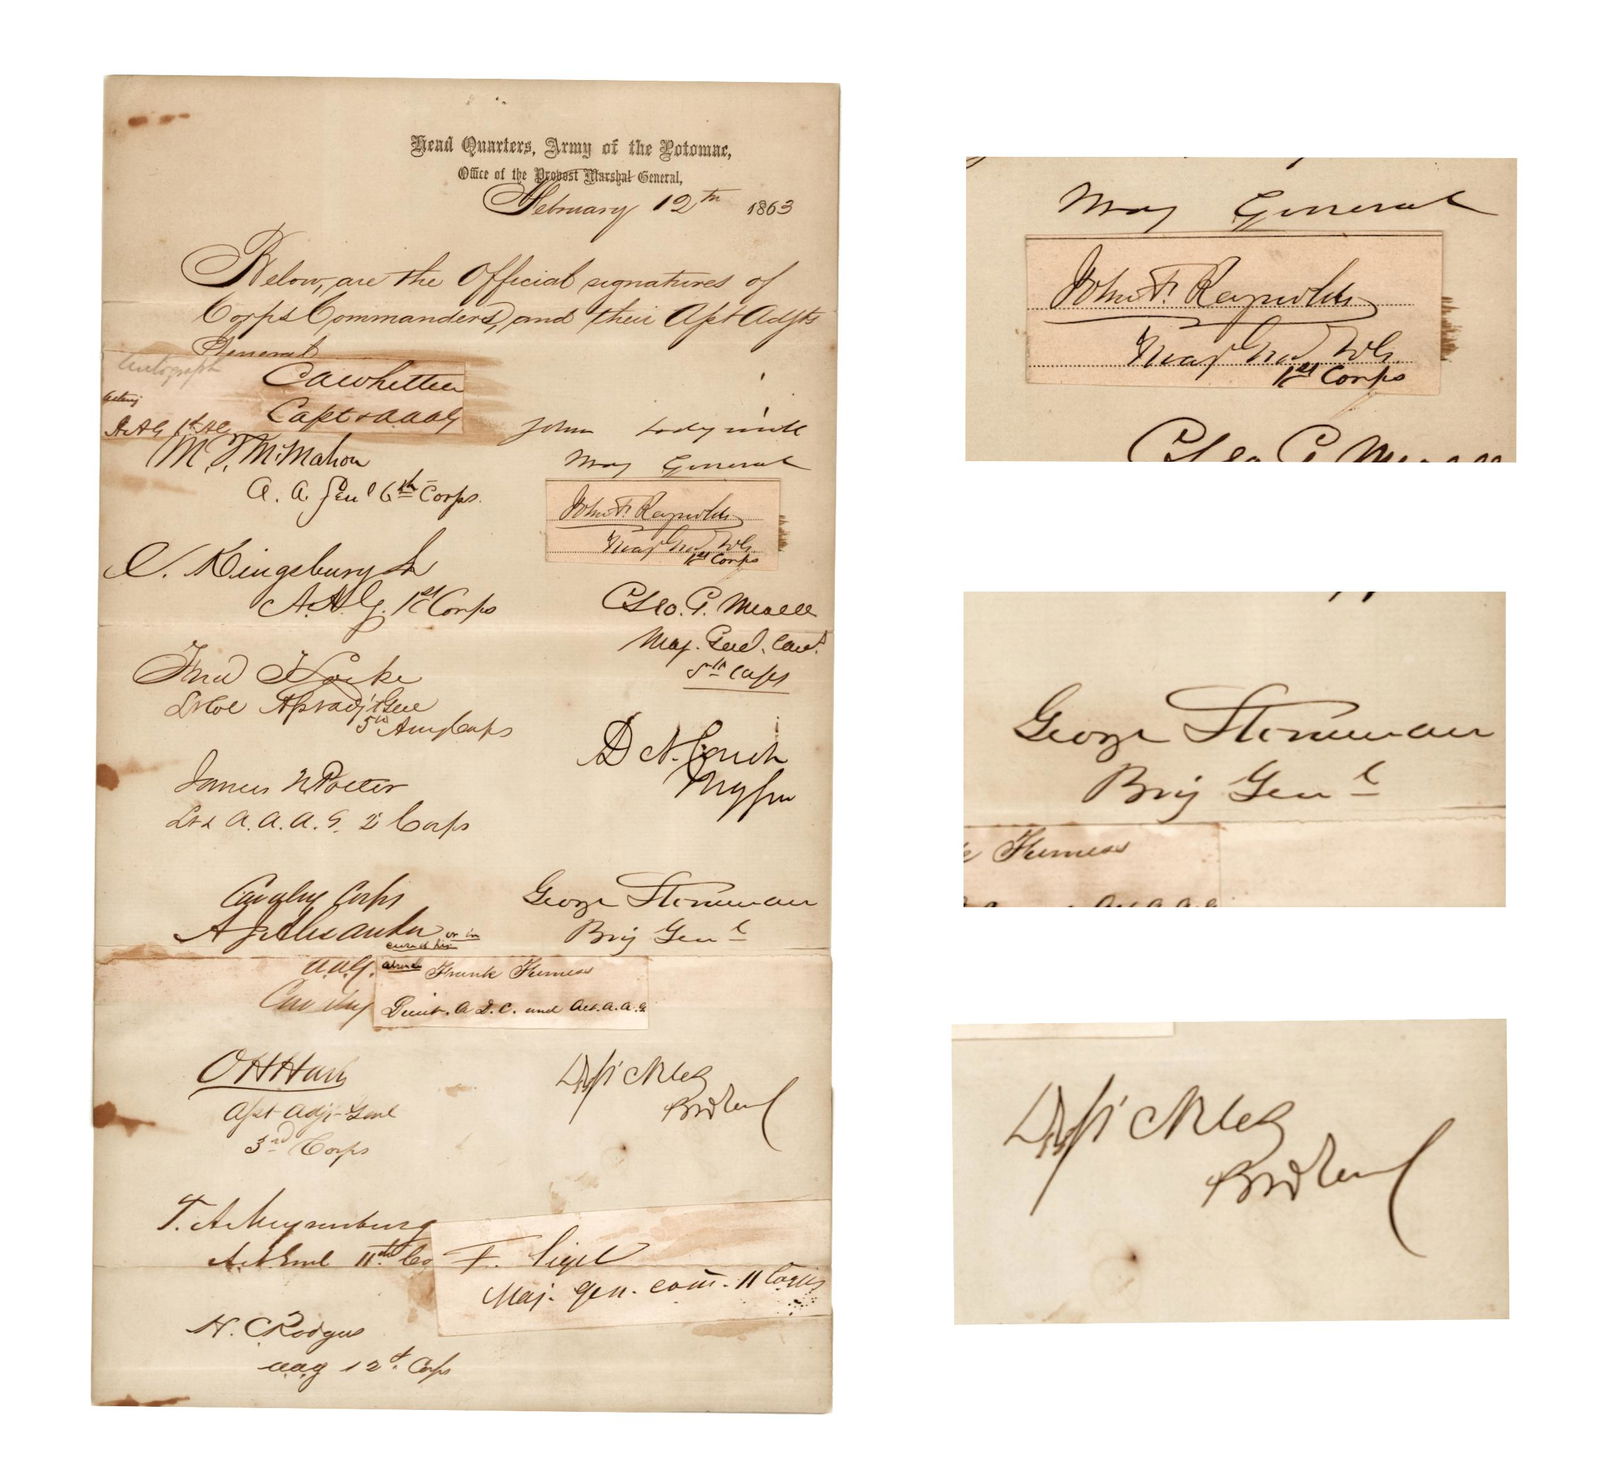 Head Quarters, Army of the Potomac,
Office of the Provost Marshal General,
February 12th 1863
Below, are the Official signatures of
Corps Commanders, and their Asst Adjts
General
Autograph
CAWhittier
Capt & AAAG
acting
John Sedgwick
M. T. McMahon
Maj General
A. A. Genl 6th Corps.
John F. Reynolds
Maj Genl Vols.
1st Corps
C. Kingsbury Jr
A.A.G. 1st Corps
Geo. G. Meade
Maj. Genl. Comd.
5th Corps
Fred T Locke
Lt Col Asst Adjt Gen
5th Army Corps
D N. Couch
Maj Gen
James N Potter
Lt & A.A.A.G. 2 Corps
Cavalry Corps
George Stoneman
A J Alexander
Brig Genl
A.A.G.
Cavalry
or in
absence
Frank Furness
Lieut. A.D.C. and Act. A.A.G.
O H Hart
Asst Adjt Genl
3rd Corps
D Sickles
T. A. Meysenburg
11th Co
F. Sigel
Maj. gen. com. 11 Corps
H. C. Rodgers
aag 12th Corps
Maj General
John F. Reynolds
Maj Genl Vols.
1st Corps
Geo G Meade
George Stoneman
Brig Genl
Furness
D Sickles